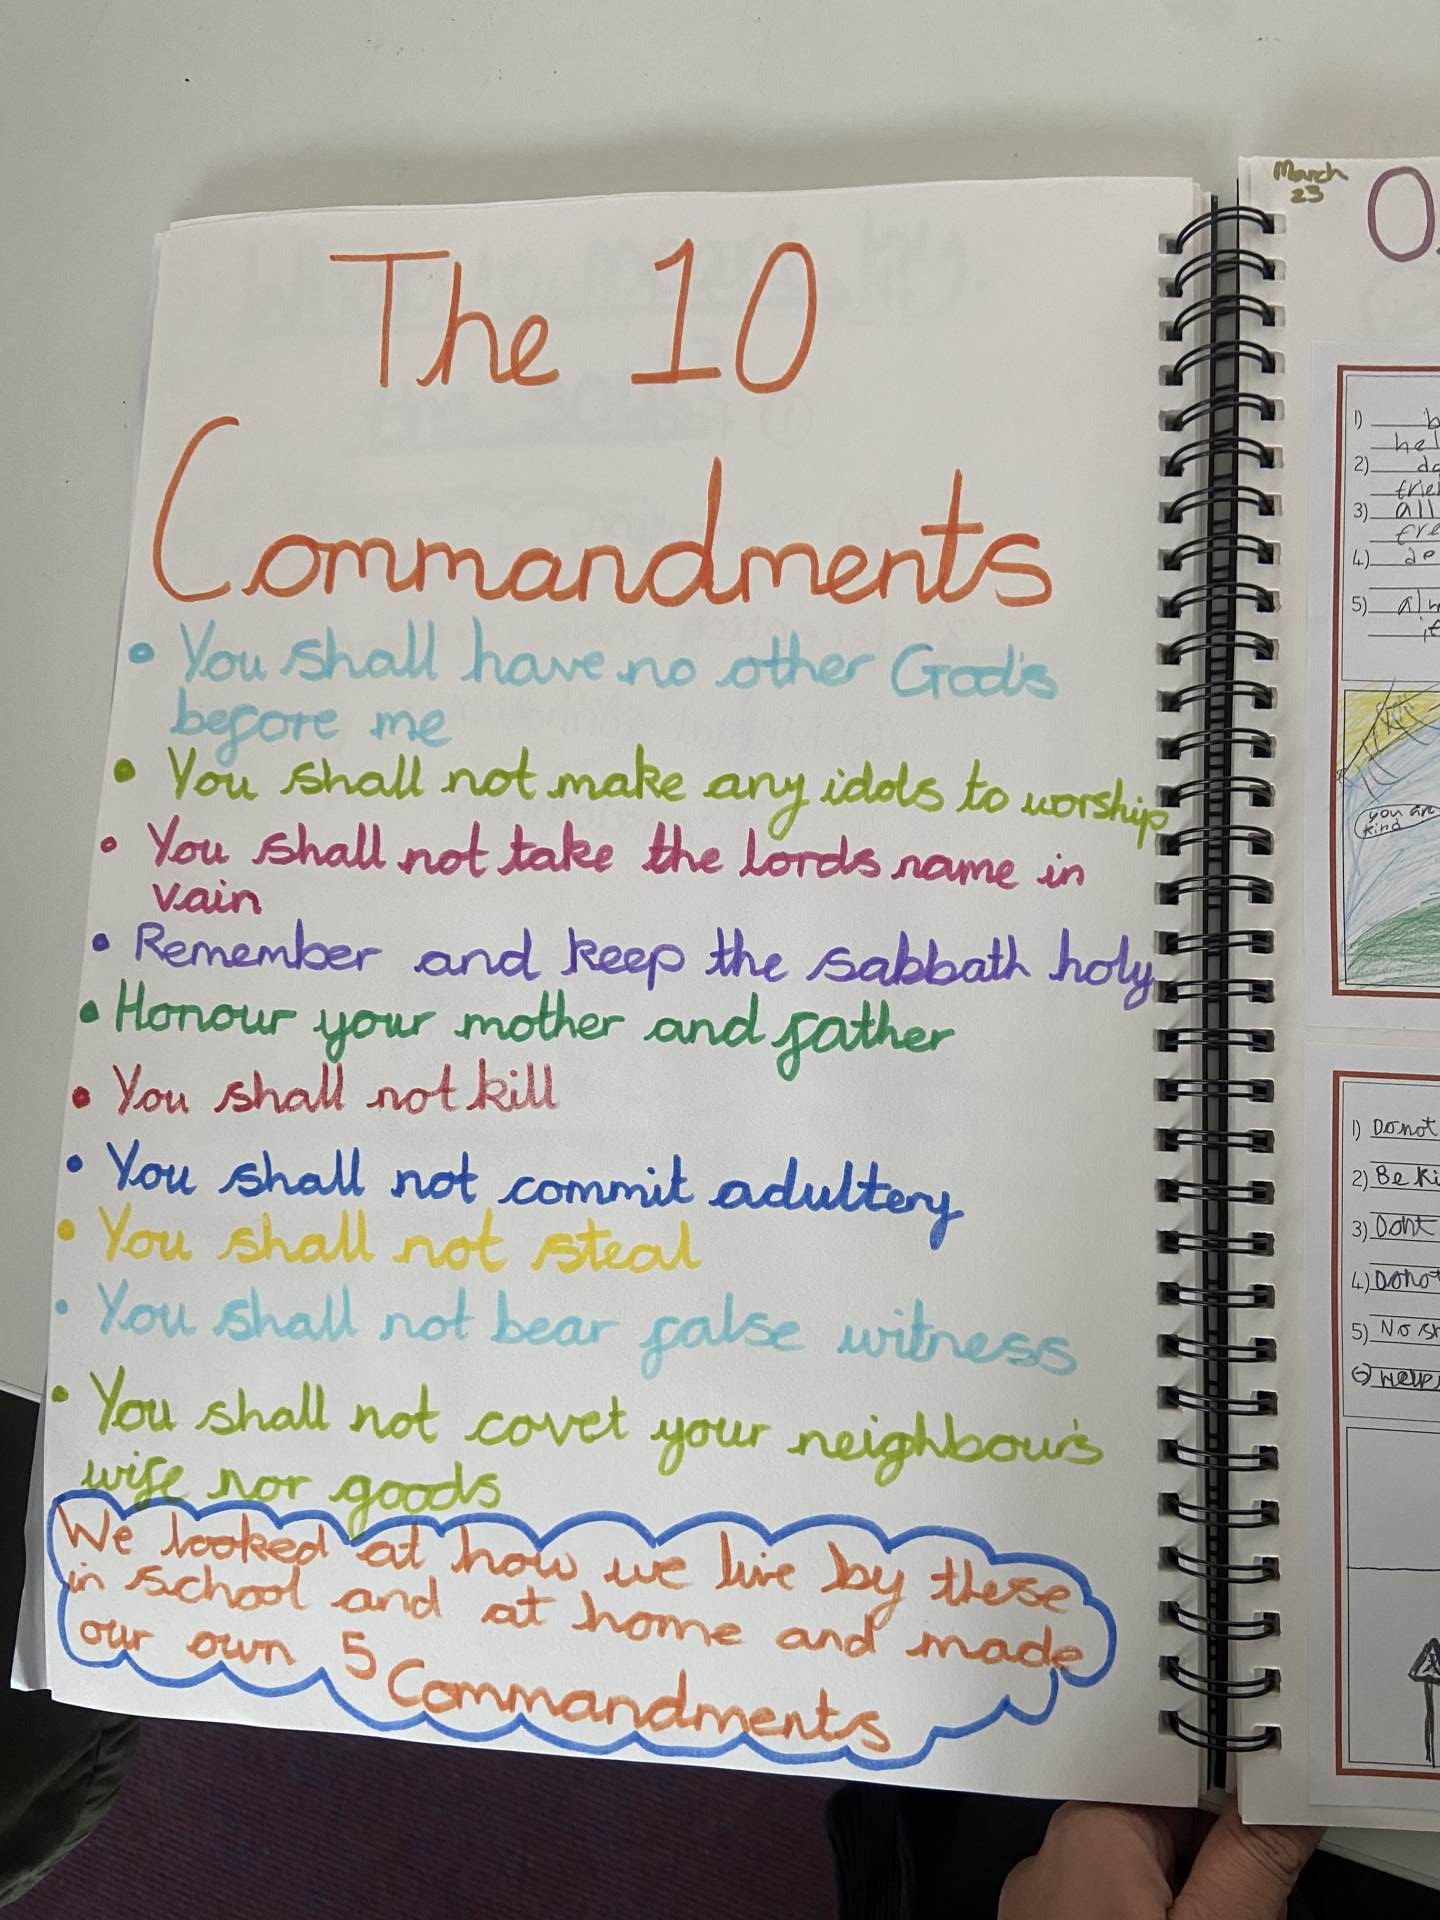 The 10
Commandments
• You shall have no other God's
before me
• You shall not make any idols to worship
• You shall not take the lords name in
vain
• Remember and keep the sabbath holy
• Honour your mother and father
• You shall not kill
• You shall not commit adultery
• You shall not steal
• You shall not bear false witness
• You shall not covet your neighbour's
wife nor goods
We looked at how we live by these
in school and at home and made
our own 5
Commandments
March
23
O
1)
2)
3) all
4)
5)
you are
kind
1) Do not
2) Be
3) Dont
4) Do not
5) No
6)